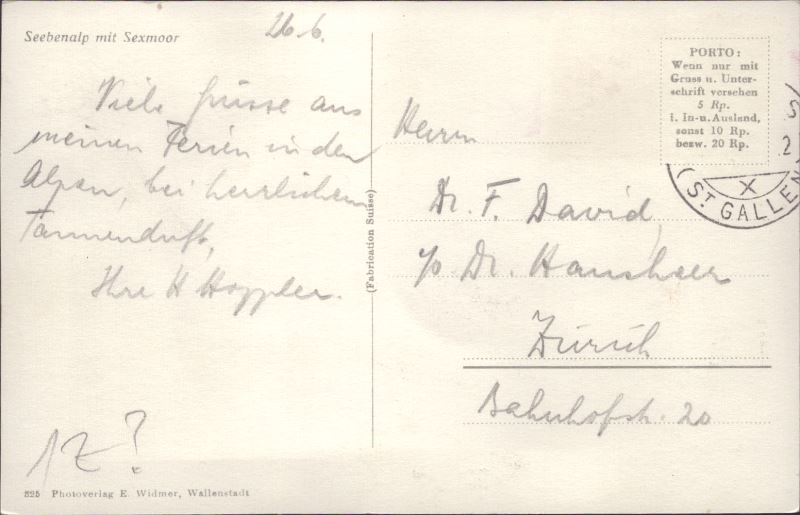 Seebenalp mit Sexmoor
26.6.
Viele Grüsse aus
meinen Ferien in den
Alpen, bei herrlichem
Tannenduft,
Ihre H Hoppler.
1Z?
825 Photoverlag E. Widmer, Wallenstadt
(Fabrication Suisse)
PORTO:
Wenn nur mit
Gruss u. Unter-
schrift versehen
5 Rp.
i. In- u. Ausland,
sonst 10 Rp.
bezw. 20 Rp.
ST GALLEN
X
Herrn
Dr. F. David,
p. Dr. Hausheer
Zürich
Bahnhofstr. 20